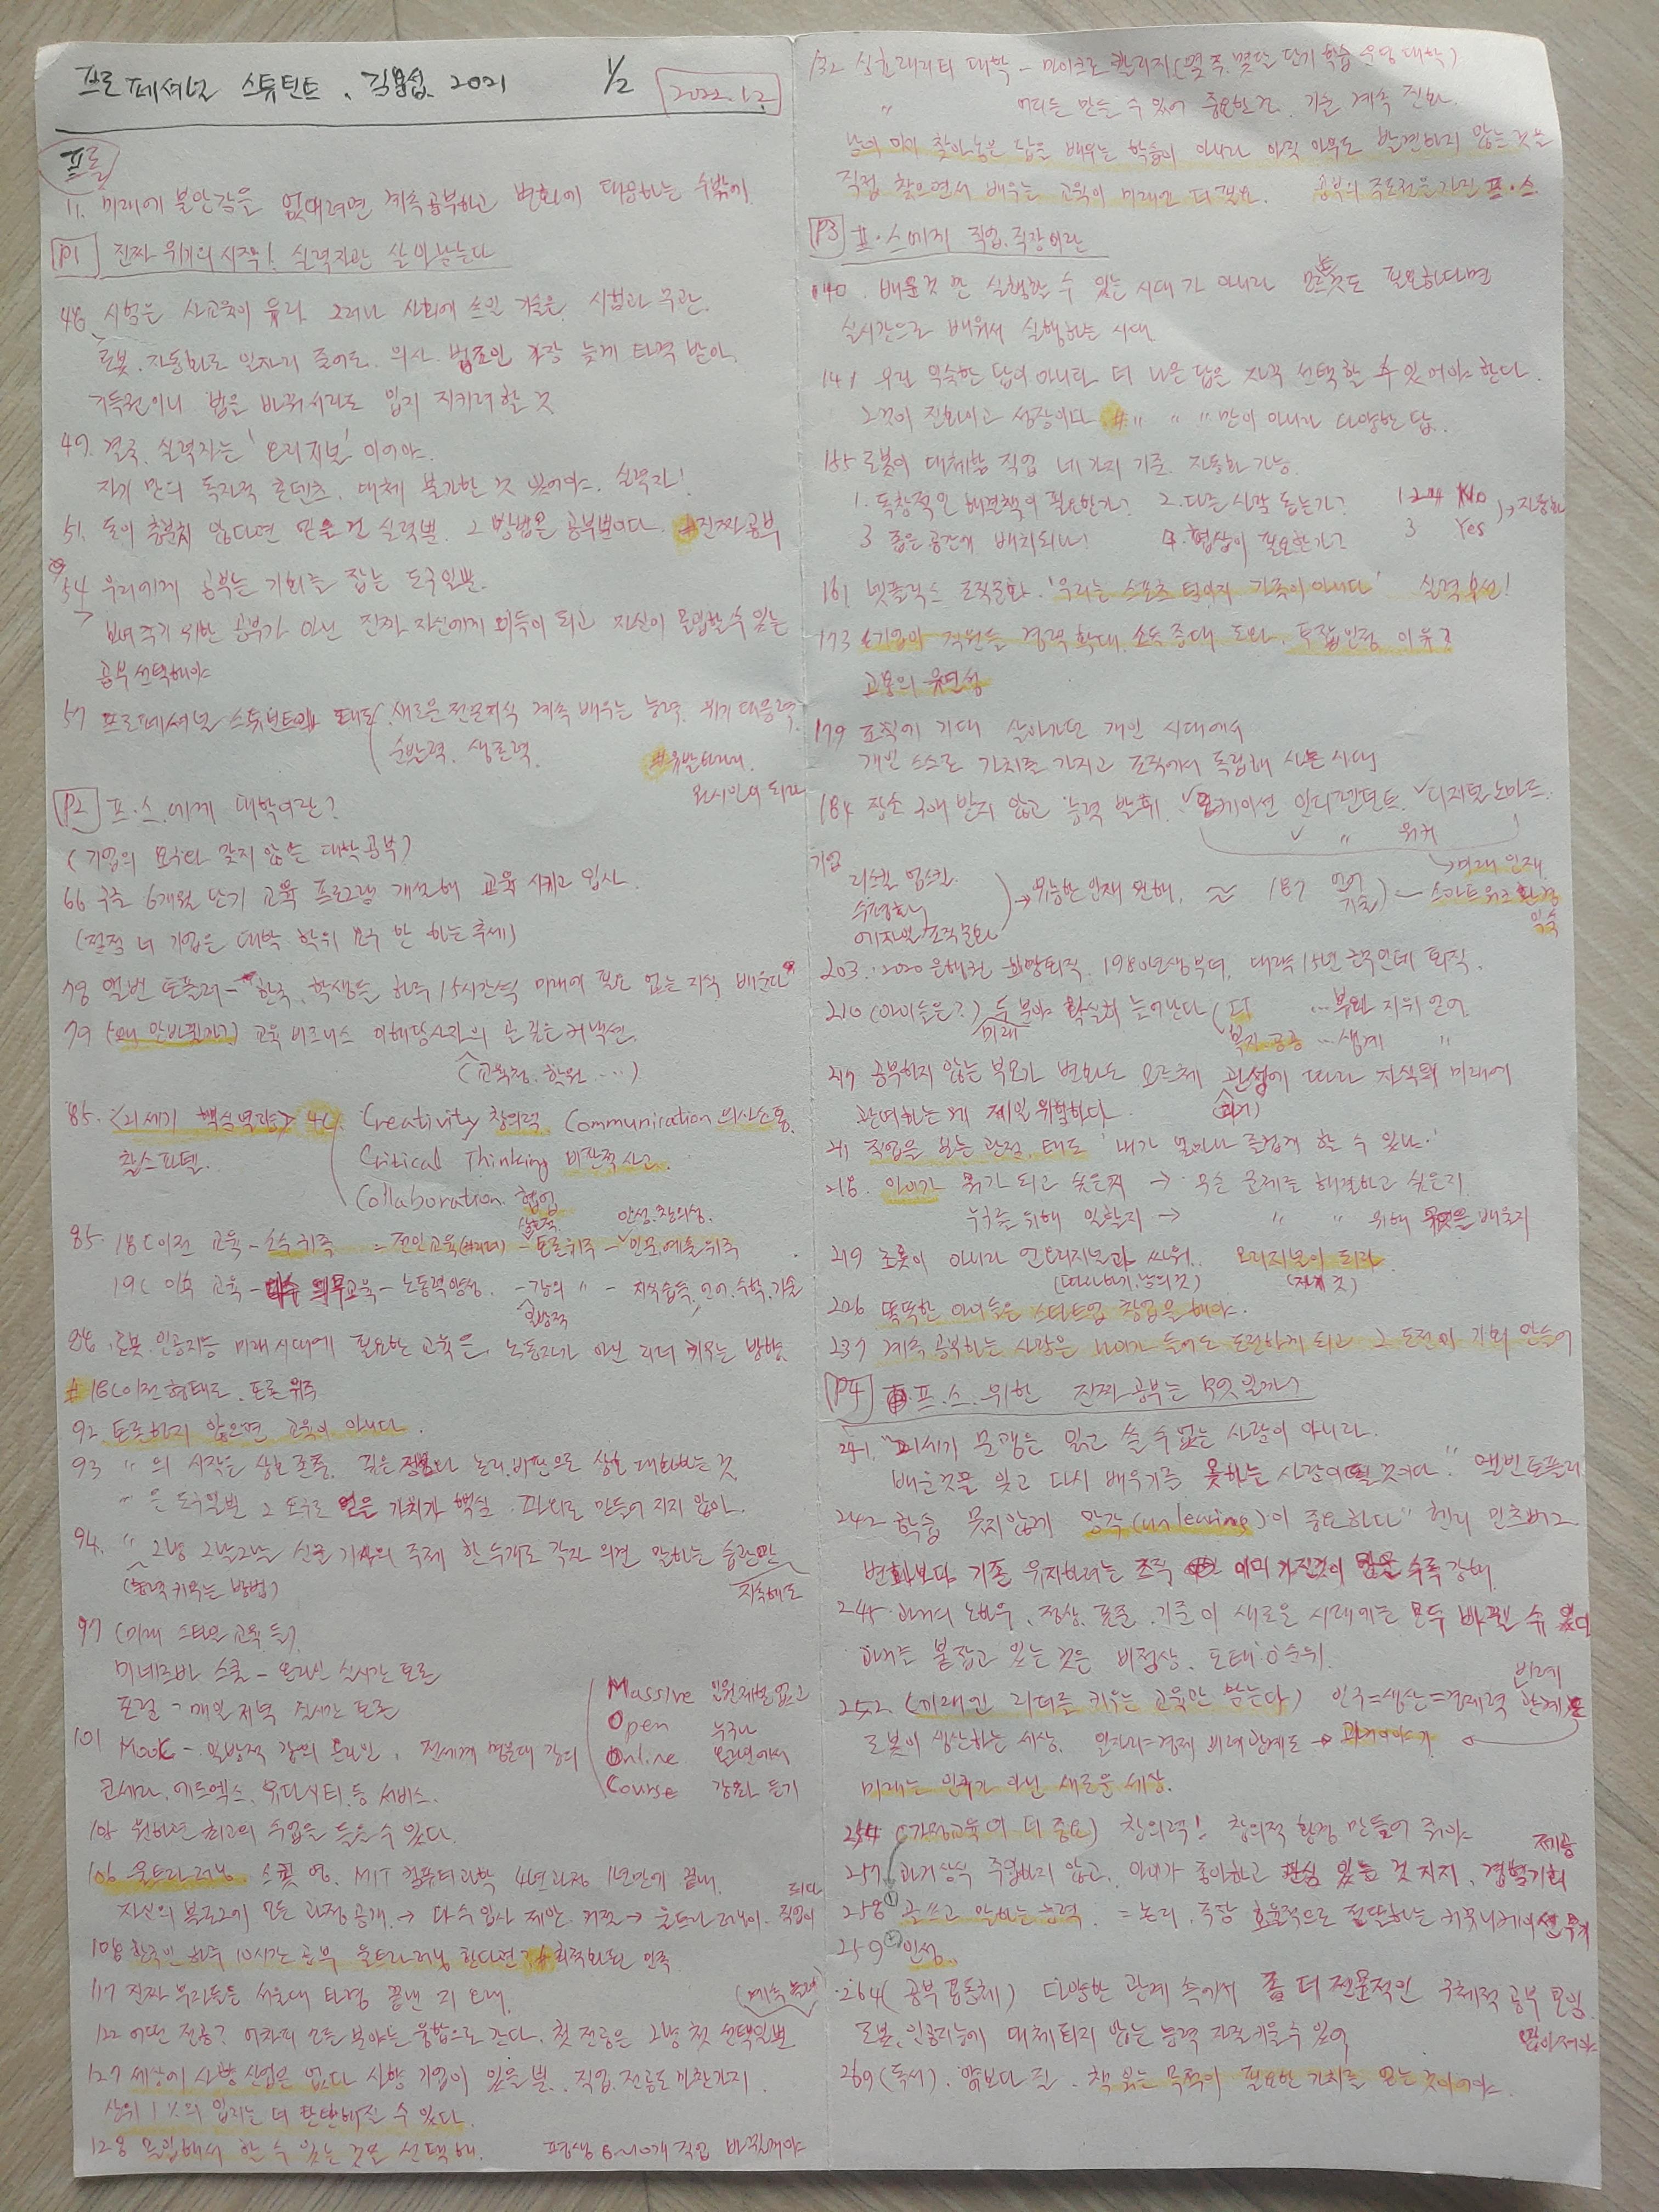 프로페셔널 스튜던트. 김용섭. 2021 1/2 2022.1.2
프롤
11. 미래에 불안감을 없애려면 계속 공부하고 변화에 대응하는 수밖에.
P1 진짜 위기의 시작! 실력자만 살아남는다
48 시험은 사교육이 유리. 그러나 사회에 쓰일 기술은 시험과 무관.
로봇. 자동화로 일자리 줄어도. 의사. 법조인 가장 늦게 타격 받아.
기득권이니 법을 바꿔서라도 입지 지키려 할 것
49. 결국, 실력자는 '오리지널' 이어야.
자기 만의 독자적 콘텐츠, 대체 불가한 것 있어야. 실력자!
51. 돈이 충분치 않다면 믿을 건 실력뿐. 그 방법은 공부뿐이다. #진짜공부
54 우리에게 공부는 기회를 잡는 도구일뿐.
보여주기 위한 공부가 아닌 진짜 자신에게 이득이 되고 자신이 몰입할 수 있는
공부 선택해야
57 프로페셔널 스튜던트의 태도 새로운 전문지식 계속 배우는 능력. 위기 대응력.
순발력. 생존력.
P2 프.스.에게 대학이란?
(기업의 요구와 맞지 않는 대학공부)
66 구글 6개월 단기 교육 프로그램 개설해 교육 시키고 입사.
(점점 더 기업은 대학 학위 요구 안 하는 추세)
78 앨빈 토플러- "한국 학생들 하루 15시간씩 미래에 필요 없는 지식 배운다"
79 (왜 안바뀔까?) 교육 비즈니스 이해당사자의 손 깊은 커넥션.
(교육청. 학원 ...)
85. <21세기 핵심역량> 4C Creativity 창의력. Communication 의사소통.
찰스 파델. Critical Thinking 비판적 사고.
Collaboration 협업
상호적. 인성. 창의성.
85. 18C이전 교육-소수 귀족 = 전인교육(리더) - 토론위주 - 인문.예술 위주
19C 이후 교육- 의무교육- 노동력양성. -강의 " - 지식습득, 언어.수학.기술
일방적
86. 로봇.인공지능 미래 시대에 필요한 교육은, 노동자가 아닌 리더 키우는 방향.
# 18C이전 형태로. 토론 위주
92 토론하지 않으면 교육이 아니다.
93 " 의 시작은 상호 존중. 짚은 논리.비판으로 상호 대화하는 것.
" 은 도구일뿐 그 도구로 얻을 가치가 핵심. 만들어 지지 않아.
94. " 그냥 그날그날 신문 기사의 주제 한 두개로 각자 의견 말하는 습관만
(능력 키우는 방법) 지속해도
97 (미래 스타일 교육 등)
미네르바 스쿨 - 온라인 실시간 토론
101 Mook - 일방적 강의 온라인, 전세계 명문대 강의
Massive 인원제한 없고
Open 누구나
Online 온라인에서
Course 강좌 듣기
코세라. 에드엑스. 유다시티 등 서비스.
원하면 최고의 수업을 들을 수 있다.
106 울트라러닝. 스콧 영. MIT 컴퓨터과학 4년과정 1년만에 끝내.
자신의 블로그에 모든 과정 공개. → 다수 입사 제안. 거절 → 울트라 러닝이 직업이 되다
108 한국인 하루 10시간 공부 울트라 러닝 한다면? # 최적화된 민족
117 진짜 부자들은 서울대 타령 끝낸 지 오래.
122 어떤 전공? 어차피 모든 분야는 융합으로 간다. 첫 전공은 그냥 첫 선택일뿐 (계속 늘려)
127 세상에 사양 산업은 없다 사양 기업이 있을 뿐. 직업 전공도 마찬가지.
상위 1%의 입지는 더 탄탄해질 수 있다.
128 몰입해서 할 수 있는 것을 선택해. 평생 8-10개 직업 바뀔거야
132 싱귤래리티 대학 - 마이크로 칼리지 (몇 주. 몇달 단기 학습 수업 대학)
" 중요한건. 기술 계속 진화.
남이 미리 찾아놓은 답을 배우는 학습이 아니라 아직 아무도 발견하지 않은 것을
직접 찾으면서 배우는 교육이 미래엔 더 필요. 공부의 주도권을 가진 프.스.
P3 프.스에게 직업.직장이란
140. 배운것 만 실행할 수 있는 시대가 아니라 모르는것도 필요하다면
실시간으로 배워서 실행하는 시대.
141 우린 익숙한 답이 아니라 더 나은 답을 자꾸 선택할 수 있어야 한다.
그것이 진화이고 성장이다. # " " " 만이 아니라 다양한 답.
155 로봇이 대체할 직업 네가지 기준. 자동화 가능.
1. 독창적인 해결책이 필요한가? 2. 다른 사람 돕는가? 1 2 4 No → 자동화
3 좁은 공간에 배치되나? 4. 협상이 필요한가? 3 Yes
161. 넷플릭스 조직문화. '우리는 스포츠 팀이지 가족이 아니다' 실력우선!
173 <기업이 직원들 경력 확대. 소득 증대 도와. 투잡 인정 이유?
고용의 유연성
179 조직에 기대 살아가던 개인 시대에서
개인 스스로 가치를 가지고 조직에서 독립해 사는 시대
184 장소 구애 받지 않고 능력 발휘. 로케이션 인디펜던트. 디지털 노마드.
" 워커
→미래 인재
기업 리스킬 업스킬.
수평화
애자일 조직문화 →유능한 인재 원해. ≈ 187 언어 기술) - 스마트워크 환경 익숙
203. 2020 은행권 희망퇴직. 1980년생부터. 대략 15년 근무인데 퇴직.
210 (아이들은?) 두 부야 확실히 늘어난다 ( IT ... 부와 지위 언어
미래 복지 공공 ... 생계 "
217 공부하지 않는 부모가 변화도 모른체 관성에 따라 자식의 미래에
관여하는 게 제일 위험하다. (과거)
직업을 보는 관점. 태도 '내가 얼마나 즐겁게 할 수 있나.'
218. 아이가 뭐가 되고 싶은지 → 무슨 문제를 해결하고 싶은지
누구를 위해 일할지 → " " 위해 무엇을 배울지
219 초롯이 아니라 언오리지널과 싸워. 오리지널이 되라
(따라하기.남의 것) (자기 것)
226 똑똑한 아이들은 스타트업 창업을 해야.
237 계속 공부하는 사람은 나이가 들어도 도전하게 되고 그 도전이 기회 만들어
P4 프.스. 위한 진짜 공부는 무엇일까?
241 "21세기 문맹은 읽고 쓸 수 없는 사람이 아니라.
배운것을 잊고 다시 배우기를 못하는 사람이 될 것이다." 앨빈 토플러
242 학습 못지않게 망각(unlearning)이 중요하다" 헨리 민츠버그
변화보다 기존 유지하려는 조직 이미 가진것이 많을 수록 강해.
245. 과거의 노하우, 정상. 표준. 기준이 새로운 시대에는 모두 바뀔 수 있어
과거를 붙잡고 있는 것은 비정상. 도태 0순위.
252 (미래엔 리더를 키우는 교육만 남는다) 인구=생산=경제력 비례 관계는
로봇이 생산하는 세상. 일자리=경제 비례 관계도 → 과거이야기.
미래는 인류가 아닌 새로운 세상.
254 (가정교육이 더 중요) 창의력! 창의적 환경 만들어 줘야
257. 과거상식 주입하지 않고, 아이가 좋아하고 관심 있는 것 지지, 경험기회 제공
258 글쓰고 말하는 능력. = 논리. 주장 효율적으로 전달하는 커뮤니케이션 무기
259 인성.
264 (공부 공동체) 다양한 관계 속에서 좀 더 전문적인 구체적 공부 모임 많아져야
로봇.인공지능에 대체되지 않는 능력 자꾸 키울 수 있어
269 (독서). 양보다 질. 책 읽는 목적이 필요한 가치를 얻는 것이어야.